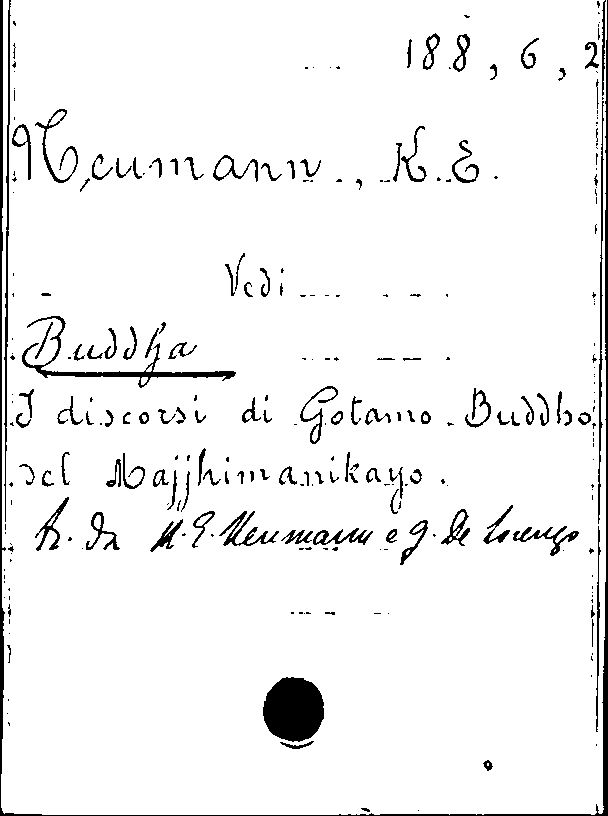 188, 6, 2
Neumann, K. E.
Vedi
Buddha
I discorsi di Gotamo Buddho
del Majjhimanikayo.
tr. da K. E. Neumann e G. De Lorenzo